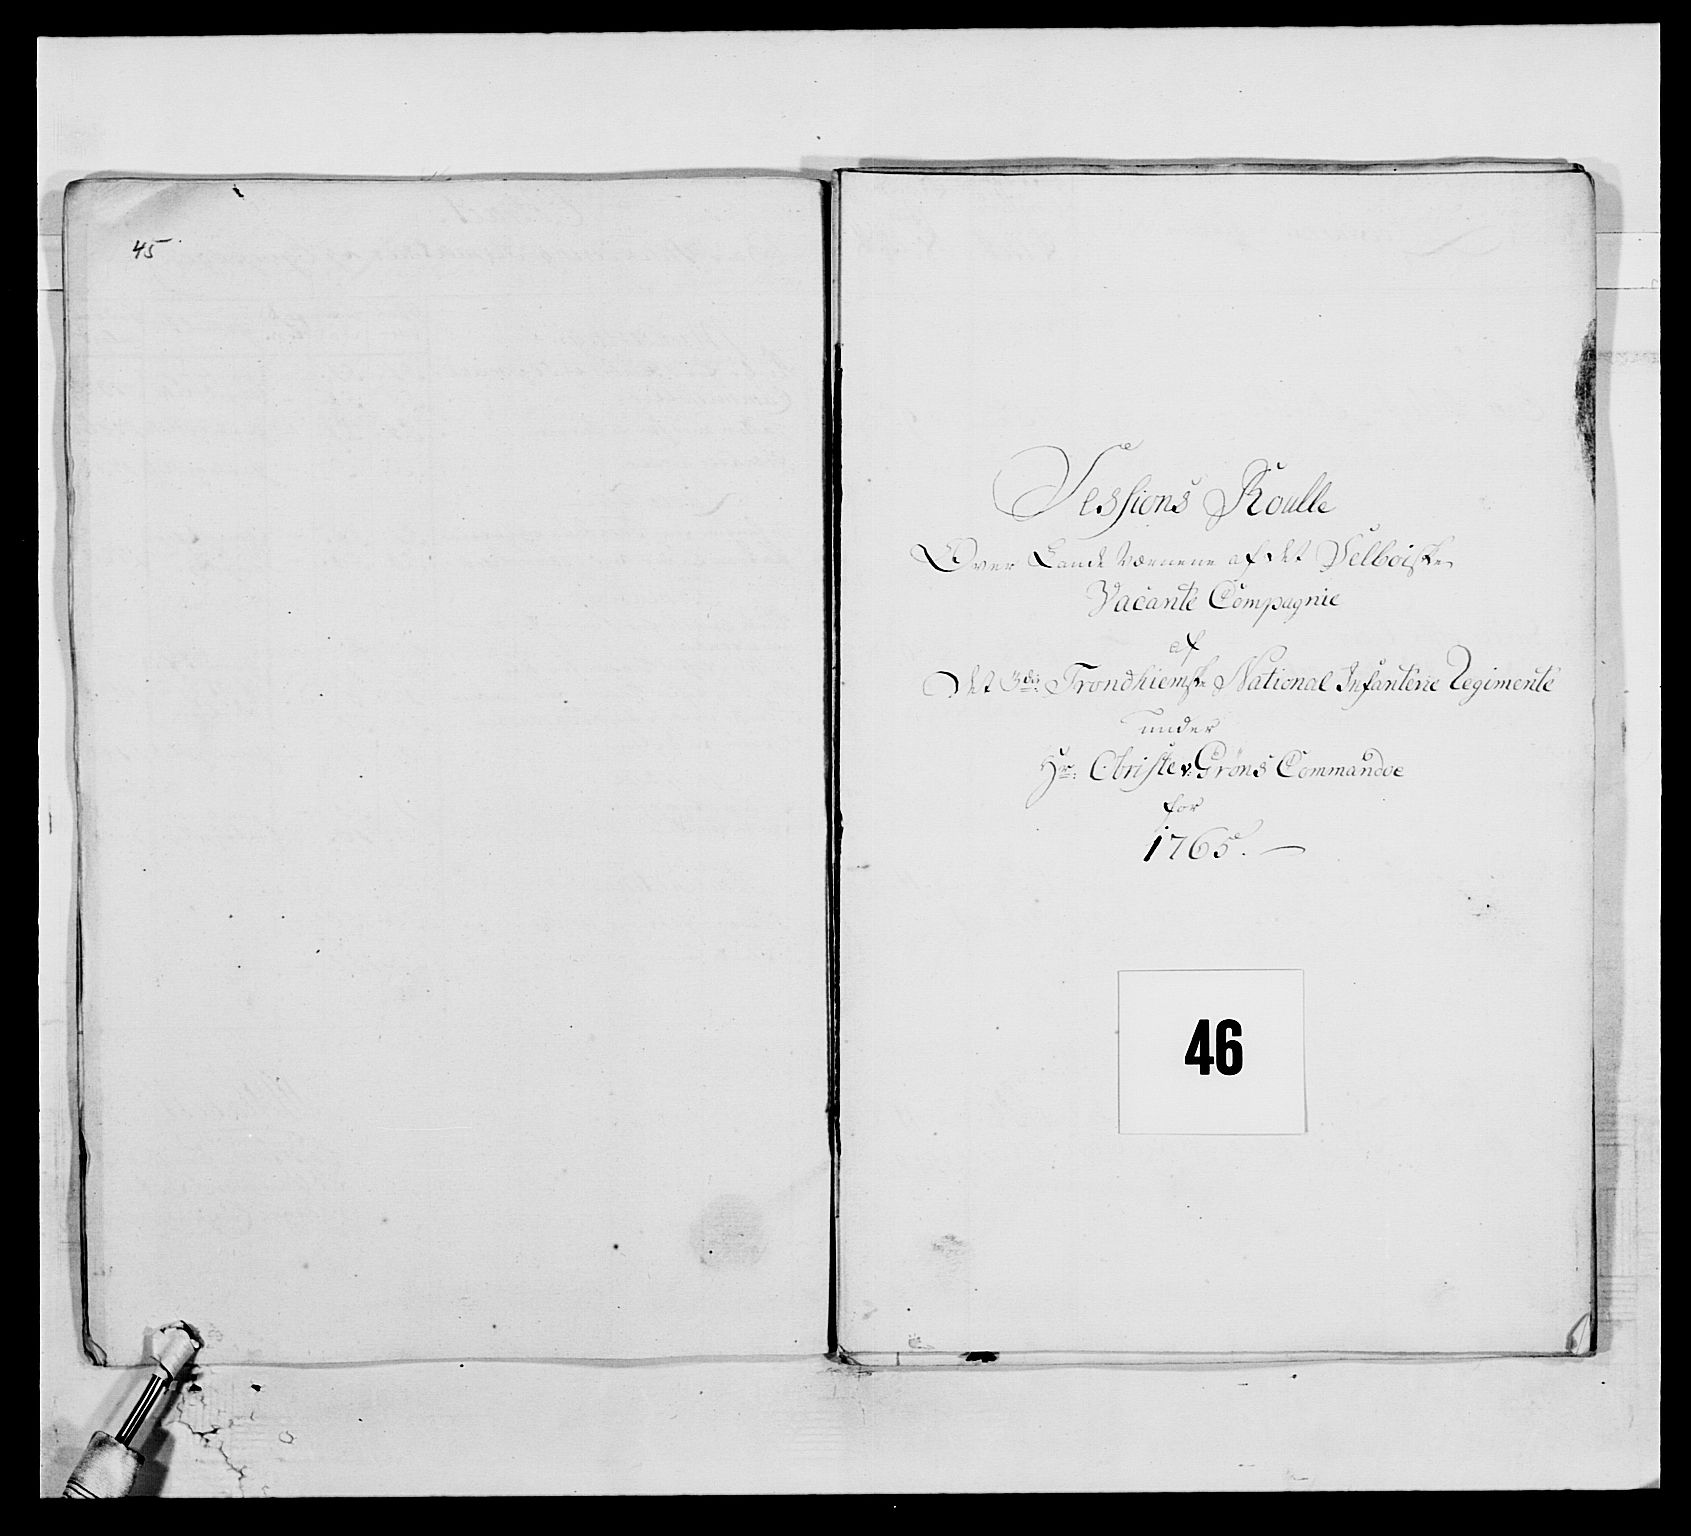 45
Sessions Roulle
Over Lande Værnene af det Selboiske
Vacante Compagnie
af
Det 3de Trondhiemske National Infanterie Regimente
under
Hr: Obriste v: Grøns Commandoe
for
1765. —
46